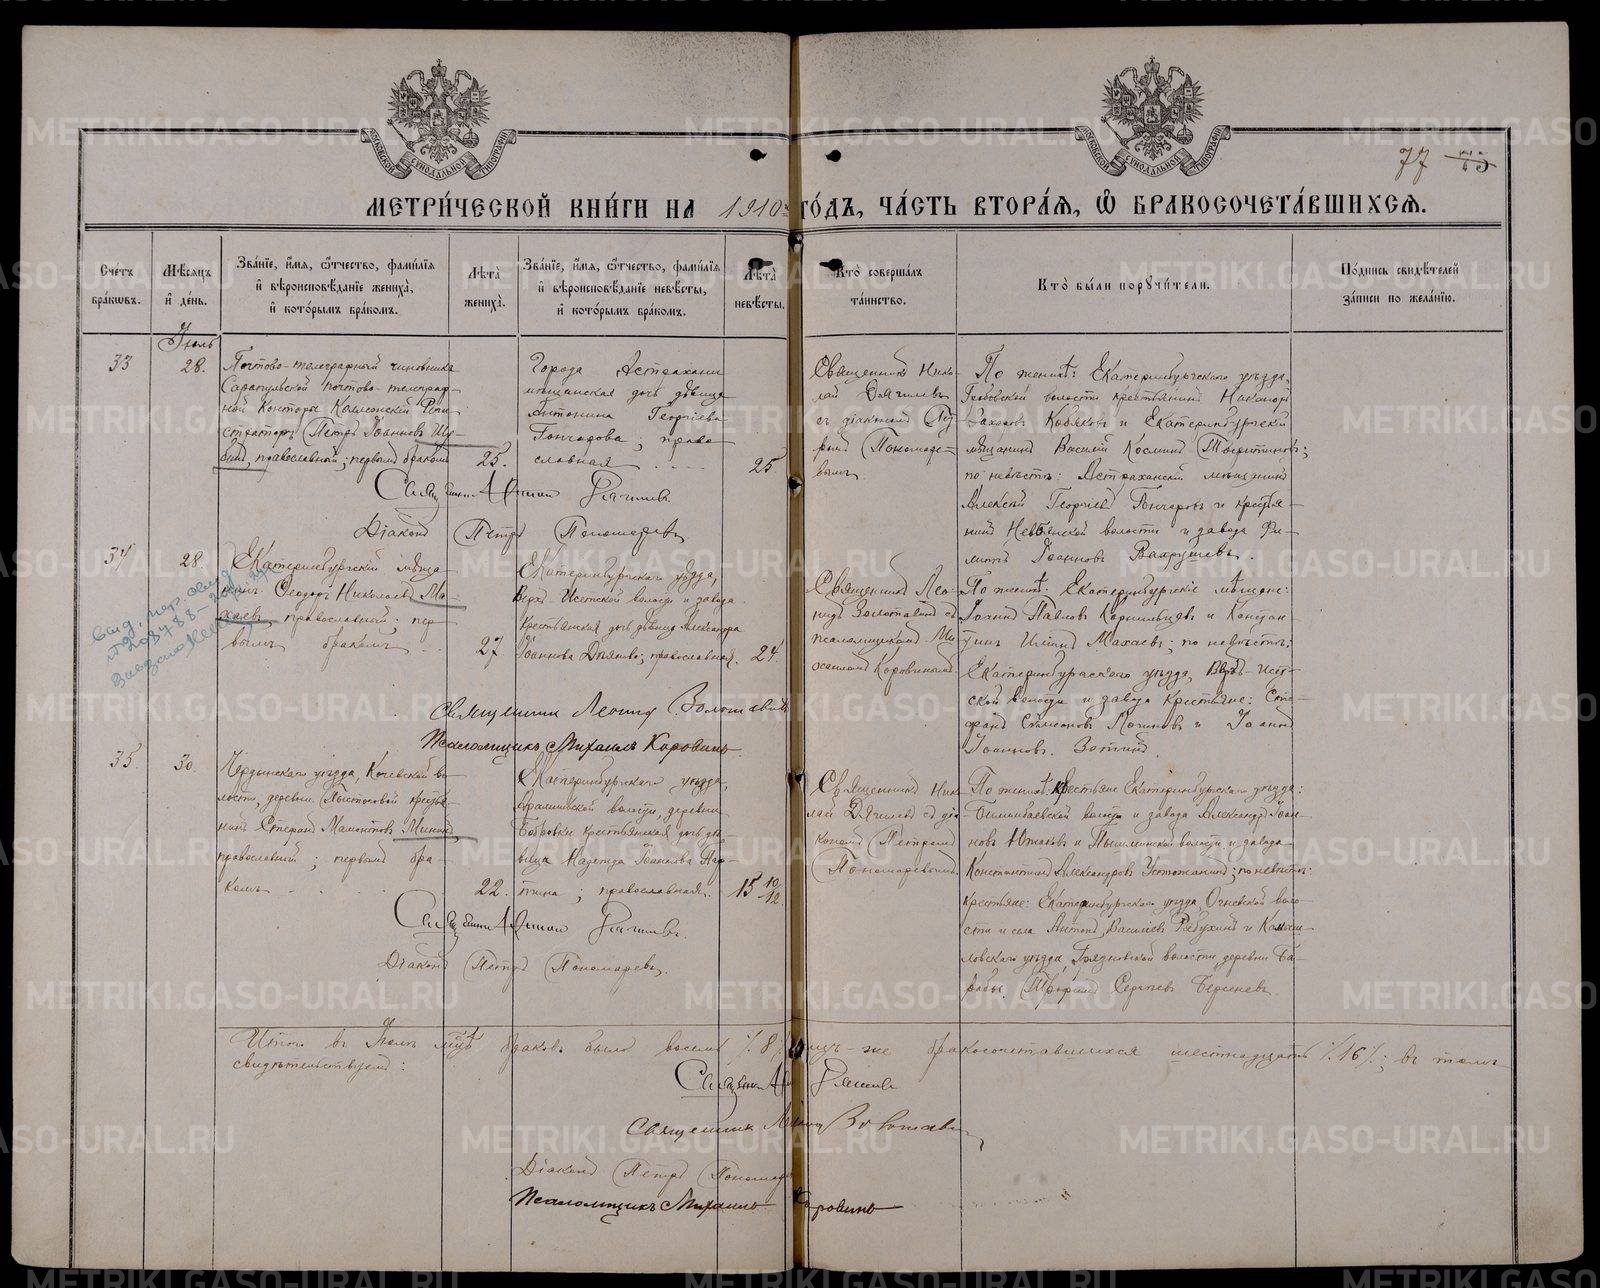 77
МЕТРИ́ЧЕСКОЙ КНИ́ГИ НА 1910й ГО́ДЪ, ЧА́СТЬ ВТОРА́Я, Ѡ БРАКОСОЧЕТА́ВШИХСЯ.
Сче́тъ бра́ковъ.
Мѣ́сяцъ и́ де́нь.
Зва́нїе, и́мя, о́тчество, фами́лїя и́ вѣроисповѣ́данїе жениха̀, и́ кото́рымъ бра́комъ.
Лѣта̀ жениха̀.
Зва́нїе, и́мя, о́тчество, фами́лїя и́ вѣроисповѣ́данїе невѣ́сты, и́ кото́рымъ бра́комъ.
Лѣта̀ невѣ́сты.
Кто̀ соверша́лъ та́инство.
Кто̀ бы́ли поручи́тели.
По́дпись свидѣ́телей за́писи по жела́нїю.
Іюль
33
28.
Почтово-телеграфный чиновникъ
Сарапульской почтово-телеграф-
ной Конторы Коллежскій Реги-
страторъ Петръ Іоанновъ Шу-
бинъ, православный; первымъ бракомъ
25.
Города Астрахани
мѣщанская дочь дѣвица
Антонина Георгіева
Гончарова; право-
славная
25
Священникъ Нико-
лай Дягилевъ
съ діакономъ Пет-
ромъ Пономаре-
вымъ.
По женихѣ: Екатеринбургскаго уѣзда,
волости крестьянинъ Никаноръ
Захаровъ Кобяковъ и Екатеринбургскій
мѣщанинъ Василій Косминъ
по невѣстѣ: Астраханскій мѣщанинъ
Алексѣй Георгіевъ Гончаровъ и крестья-
нинъ Невьянской волости и завода Фи-
липпъ Іоанновъ Вахрушевъ.
Священникъ Дягилевъ
Діаконъ Петръ Пономаревъ
34
28
Екатеринбургскій мѣща-
нинъ Ѳеодоръ Николаевъ Ма-
хаевъ, православный; пер-
вымъ бракомъ
27.
Екатеринбургскаго уѣзда,
Верхъ-Исетской волости и завода
крестьянская дочь дѣвица Александра
Іоаннова; православная.
24.
Священникъ Лео-
нидъ Золотавинъ съ
псаломщикомъ Ми-
хаиломъ Коровинымъ
По женихѣ: Екатеринбургскіе мѣщане:
Іоаннъ Павловъ Корнильцевъ и Констан-
тинъ Махаевъ; по невѣстѣ:
Екатеринбургскаго уѣзда, Верхъ-Исет-
ской волости и завода крестьяне: Сте-
фанъ Симеоновъ Логиновъ и Іоаннъ
Іоанновъ Зотинъ.
Священникъ Леонидъ Золотавинъ
Псаломщикъ Михаилъ Коровинъ
35.
30.
Чердынскаго уѣзда, Кочевской во-
лости, деревни крестья-
нинъ Стефанъ Мамонтовъ Мининъ,
православный; первымъ бра-
комъ
22.
Екатеринбургскаго уѣзда,
Арамильской волости, деревни
Бобровки крестьянская дочь дѣ-
вица Надежда Іоаннова
православная.
15 10/12
Священникъ Нико-
лай Дягилевъ съ діа-
кономъ Петромъ
Пономаревымъ
По женихѣ: крестьяне Екатеринбургскаго уѣзда:
Билимбаевской волости и завода Александръ Іоан-
новъ Ютаковъ и Пышминской волости и завода
Константинъ Александровъ Устюжанинъ; по невѣстѣ:
крестьяне: Екатеринбургскаго уѣзда, Огневской воло-
сти и села Антонъ Васильевъ Рябухинъ и Камыш-
ловскаго уѣзда Грязновской волости, деревни Ба-
рабы Трофимъ Сергѣевъ Берсеневъ.
Священникъ Дягилевъ.
Діаконъ Петръ Пономаревъ.
Итого въ Іюлѣ мѣсяцѣ браковъ было восемь /8/, лицъ-же бракосочетавшихся шестнадцать /16/; въ томъ
свидѣтельствуемъ:
Священникъ Дягилевъ
Священникъ Леонидъ Золотавинъ
Діаконъ Петръ Пономаревъ
Псаломщикъ Михаилъ Коровинъ
METRIKI.GASO-URAL.RU